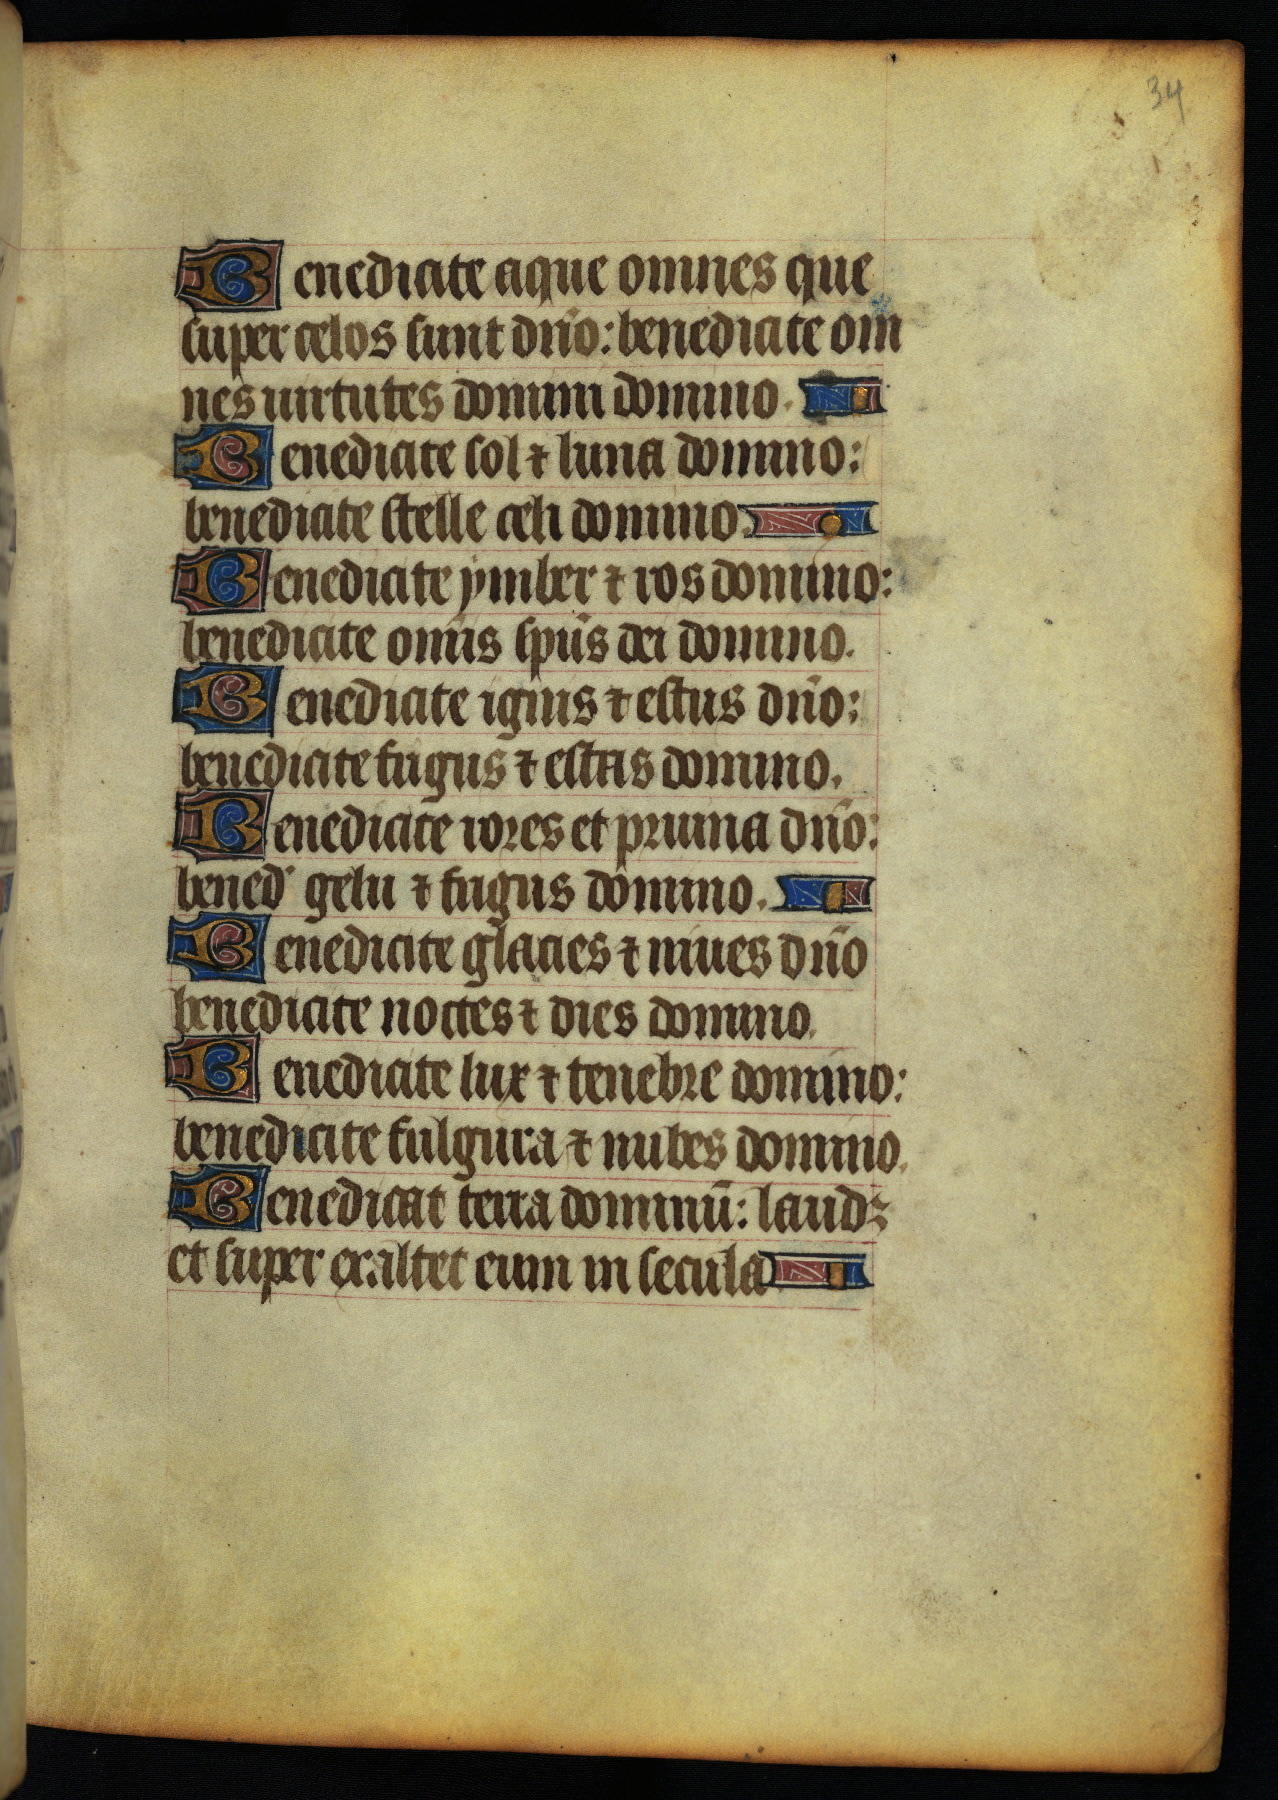 34
Benedicite aque omnes que
super celos sunt dño: benedicite om
nes uirtutes domini domino.
Benedicite sol ⁊ luna domino:
benedicite stelle celi domino.
Benedicite ymber ⁊ ros domino:
benedicite om̄is sp̄us dei domino.
Benedicite ignis ⁊ estus dño:
benedicite frigus ⁊ estas domino.
Benedicite rores et pruina dño:
bened' gelu ⁊ frigus domino.
Benedicite glacies ⁊ niues dño
benedicite noctes ⁊ dies domino.
Benedicite lux ⁊ tenebre domino:
benedicite fulgura ⁊ nubes domino.
Benedicat terra dominū: laudꝫ
et super exaltet eum in secula